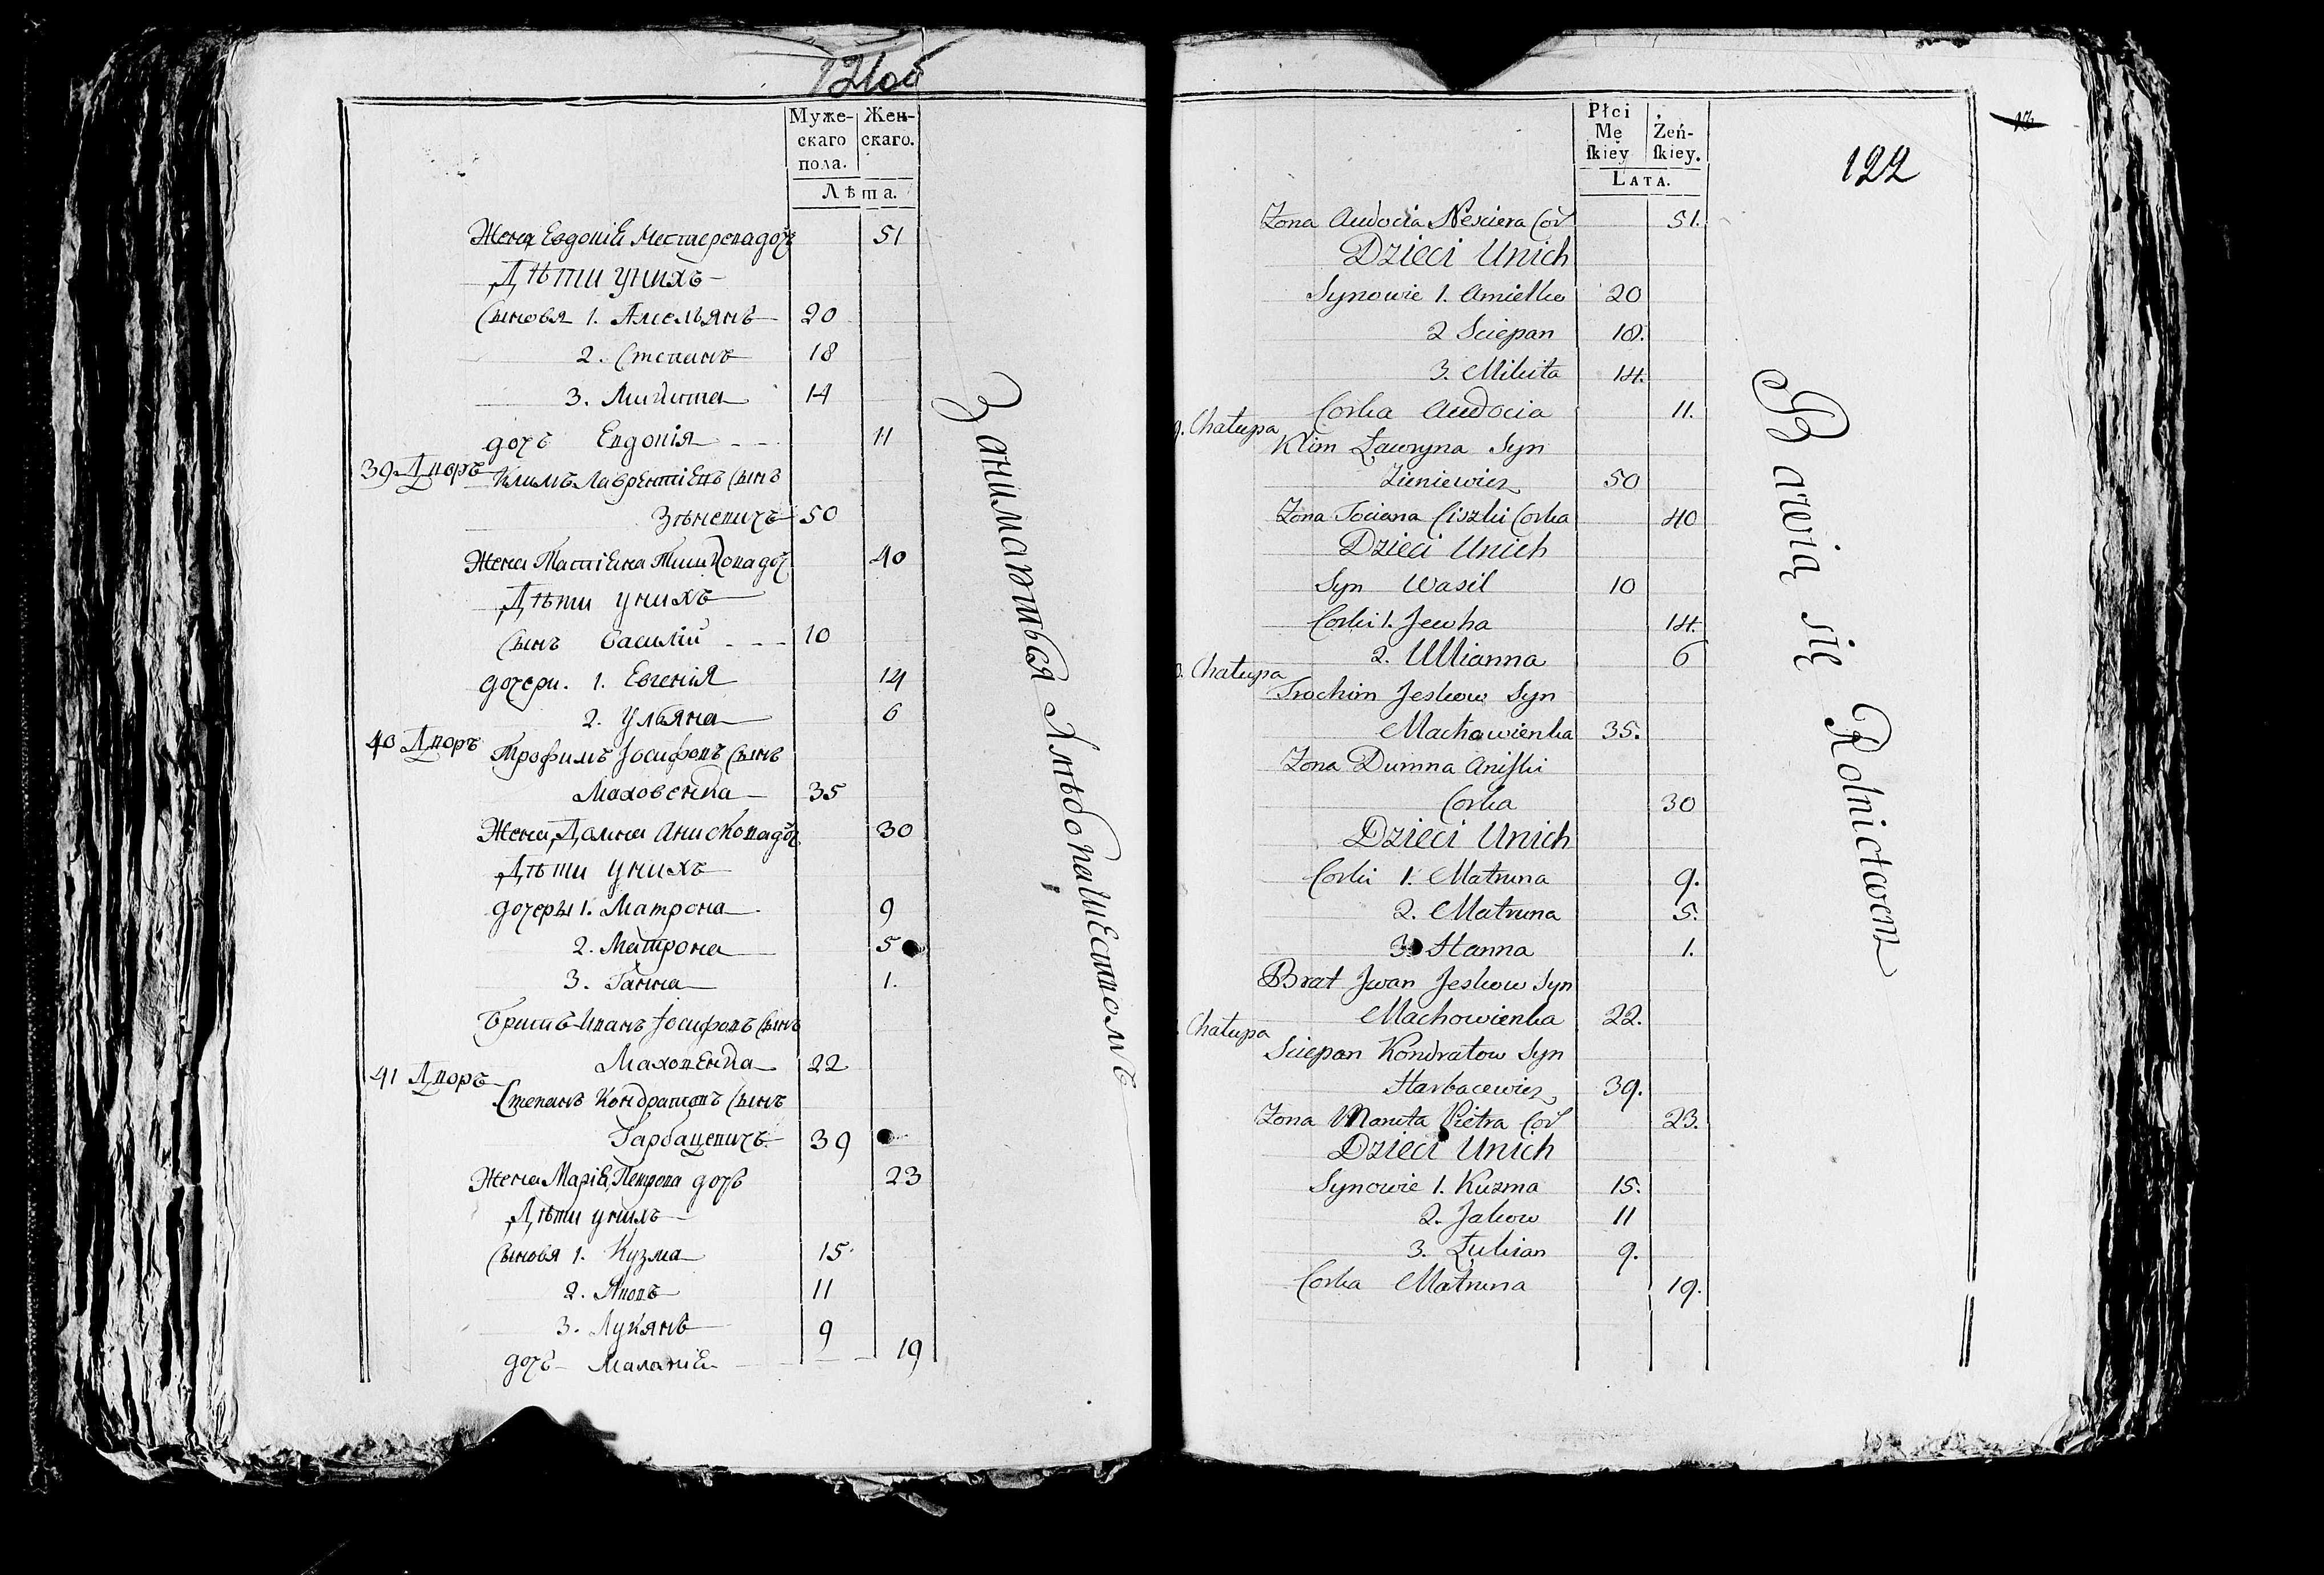 121об
Муже-
скаго
пола.
Жен-
скаго.
Лѣта.
Жена Евдокіѣ Нестерова доч 51
Дѣти унихъ
Сыновя 1. Амельянъ 20
2. Степанъ 18
3. Микита 14
дочъ Евдокія 11
39 Дворъ Климъ Лаврентіевъ Сынъ
Зѣневичъ 50
Жена Татіяна Тишкова доч 40
Дѣти унихъ
Сынъ Василій 10
дочери. 1. Евгенія 14
2. Ульяна 6
40 Дворъ
Трофимъ Іосифовъ Сынъ
Маховенка 35
Жена Домна Анискова доч 30
Дѣти унихъ
дочеры 1. Матрона 9
2. Матрона 5
3. Ганна 1.
Братъ Иванъ Іосифовъ Сынъ
Маховенка 22
41 Дворъ
Степанъ Кондратовъ Сынъ
Гарбацевичъ 39
Жена Маріѣ Петрова дочъ 23
Дѣти унихъ
Сыновя 1. Кузма 15
2. Яковъ 11
3. Лукянъ 9
дочъ Маланіѣ 19
Занимаютъся Хлѣбопашествомъ
Płci
Mę
ſkiey
Żeń-
ſkiey.
LATA.
122
Zona Audocia Nesciera Cor 51.
Dzieci Unich
Synowie 1. Amielko 20
2 Sciepan 18.
3. Mikita 14.
Corka Audocia 11.
9. Chałupa
Klim Ławryna Syn
Zieniewicz 50
Zona Tociana Ciszki Corka 40
Dzieci Unich
Syn Wasil 10
Corki 1. Jewha 14.
2. Ullianna 6
0. Chałupa
Trochim Jeskow Syn
Machawienka 35.
Zona Dumna Aniſki
Corka 30
Dzieci Unich
Corki 1. Matruna 9.
2. Matruna 5.
3. Hanna 1.
Brat Jwan Jeskow Syn
Machowienka 22.
Chałupa
Sciepan Kondratow Syn
Harbacewicz 39.
Zona Maruta Pietra Cor 23.
Dzieci Unich
Synowie 1. Kuzma 15.
2. Jakow 11
3. Łukian 9.
Corka Matruna 19.
Bawią się Rolnictwem